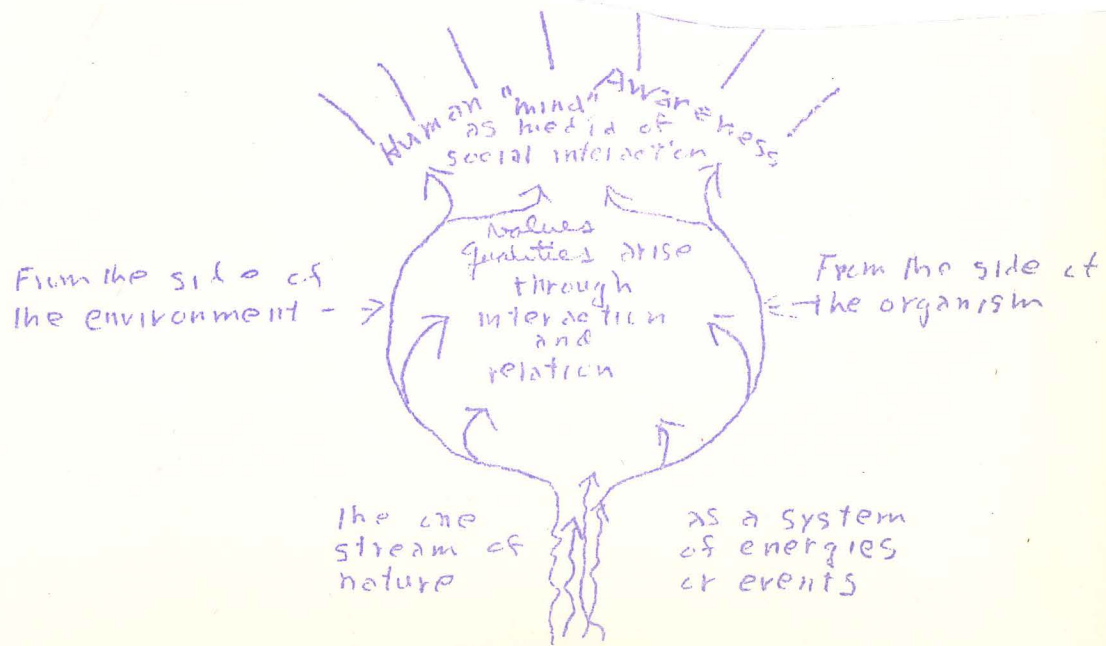 Human "mind" Awareness
as media of
social interaction
values
qualities arise
through
interaction
and
relation
From the side of
the environment -
From the side of
the organism
the one
stream of
nature
as a system
of energies
or events